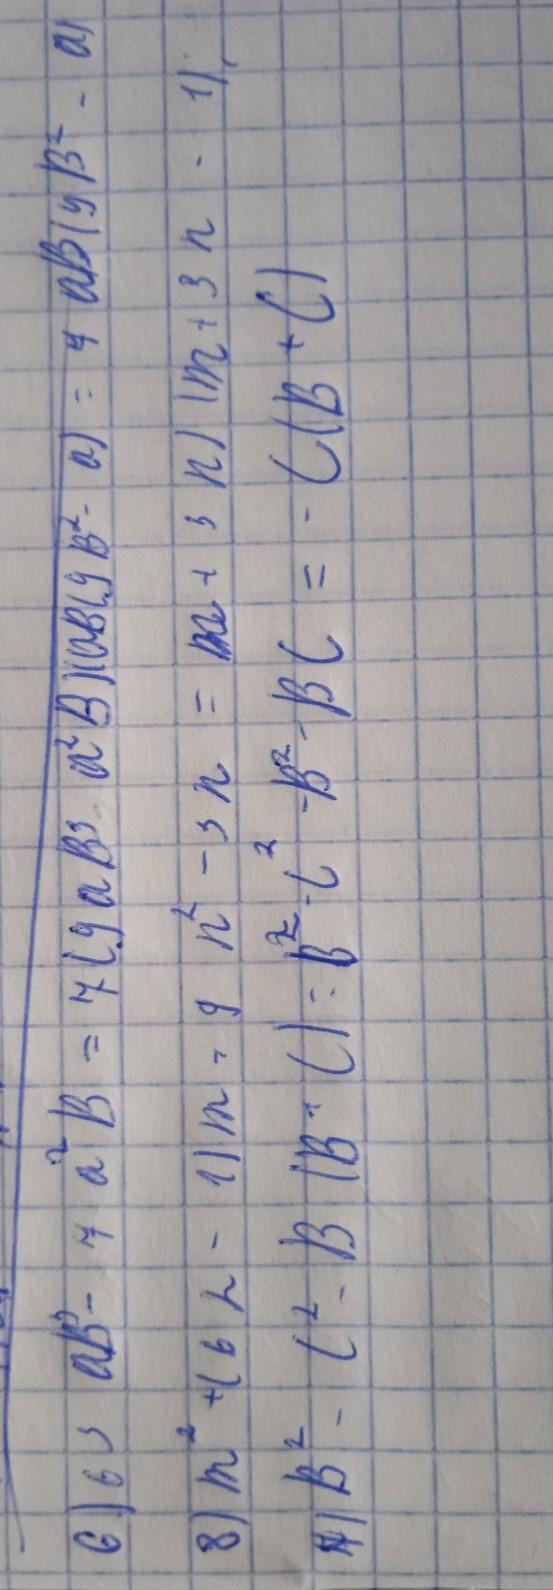 6) 63 aB³ - 7 a²B = 7(9aB³ - a²B)(aB(9B² - a) = 7 aB(9B² - a)
8) m² + (6n - 1)m + 9n² - 3n = m + 3n)(m + 3n - 1).
4) B² - C² - B(B + C) = B² - C² - B² - BC = - C(B + C)